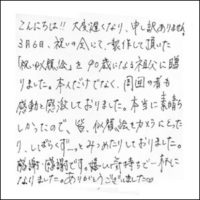 こんにちは!! 大変遅くなり、申し訳ありません
3月6日、祝いの会にて、製作して頂いた
「祝・似顔絵」を90歳になる祖父に贈
りました。本人だけでなく、周囲の者も
感動と感激しておりました。本当に素晴ら
しかったので、皆、似顔絵をカメラにとった
り、しばらくずーっとみたりしておりました。
感謝・感謝です。嬉しい気持ちで一杯に
なりました。ありがとうございました